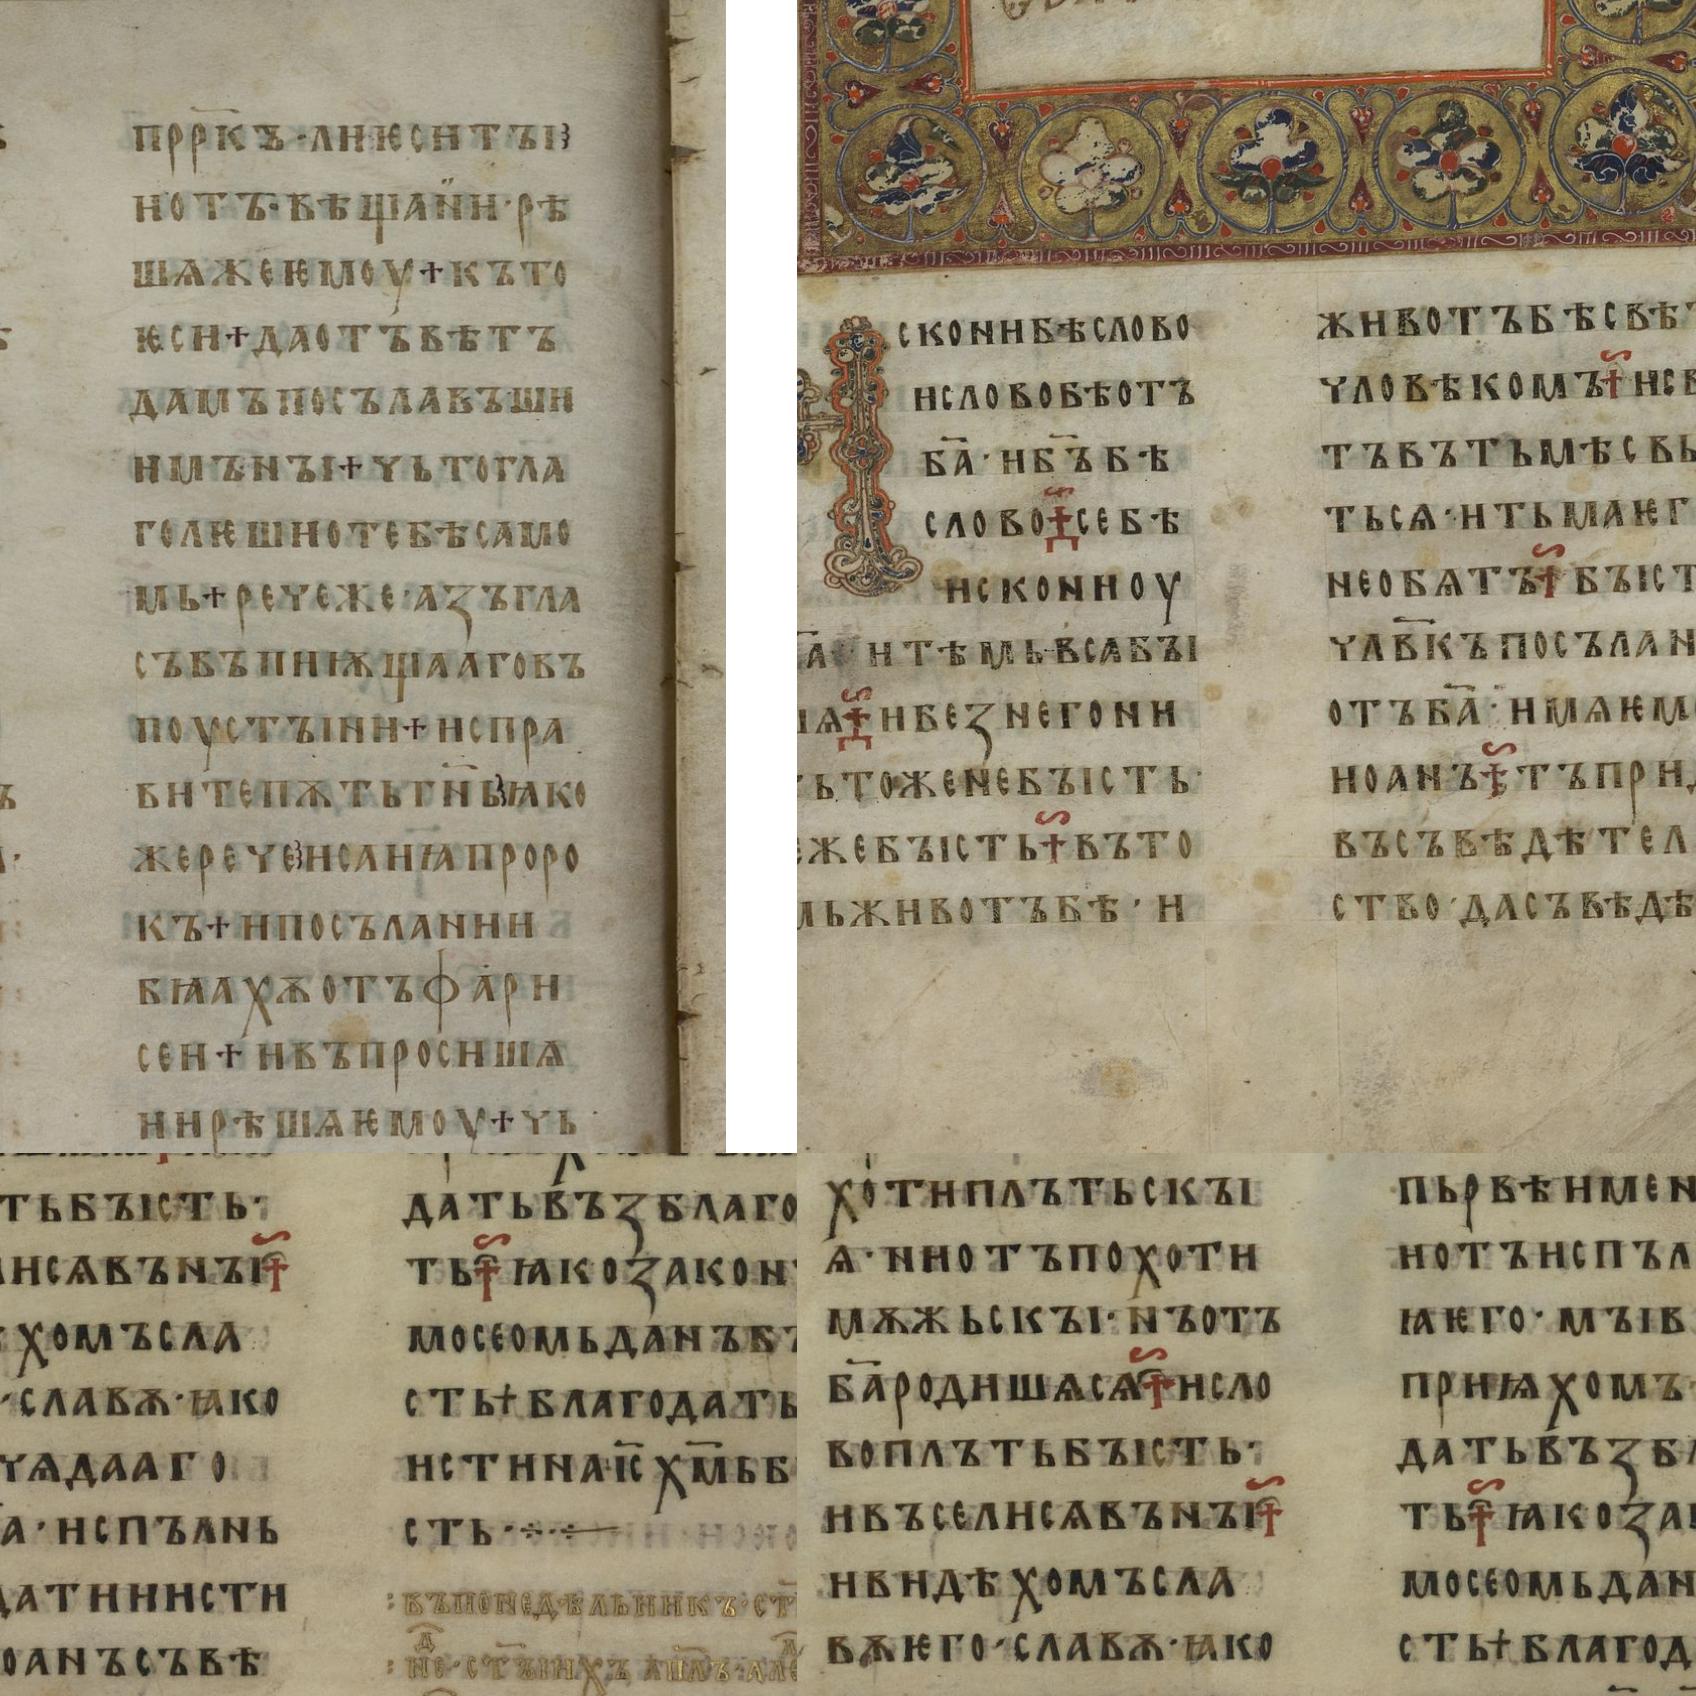 прр҃къ·лиѥситꙑı
нотъ·вѣщан҃и·рѣ
шѧжеѥмоу+къто
ѥси+даотъвѣтъ
дамъпосълавъши
имънꙑ+чьтогла
голѥшиотебѣсамо
мь+речеже·азъгла
съвъпиѭщааговъ
поустꙑни+испра
витепѫтьгн҃ьꙗко
жеречеисаиꙗпроро
къ+ипосълании
бꙗахѫотъфари
сеи+ивъпросишѧ
иирѣшѧѥмоу+чь
сконибѣслово
ислововѣотъ
ба҃·иб҃ъбѣ
слово+себѣ
искониоу
а҃·итѣмьвсабꙑ
ѧ+ибезнегони
ьтоженебꙑсть·
ежебꙑсть+въто
мьживотъбѣ·и
животъбѣсвѣт
чловѣкомъ+исв
тъвътьмѣсвь
тьсѧ·итьмаѥг
необѧтъ+бꙑст
члв҃къпосълан
отъба҃·имѧѥм
иоанъ+тъприд
въсъвѣдѣтел
ство·дасъвѣдѣ
тьбꙑсть·
лисѧвънꙑ+
хомъсла
·славѫ·ꙗко
чѧдааго
а·испълнь
датииисти
оанъсъвѣ
датьвъзблаго
ть+ꙗкозакон
мосеомьданъбꙑ
сть+благодать
истинаıс҃хм҃ьб
сть·
въпонедѣльникъ·ст҃
хотиплътьскꙑ
ѧ·ниотъпохоти
мѫжьскꙑ·нъотъ
ба҃родишѧсѧ+исло
воплътьбꙑсть·
ивъселисѧвънꙑ+
ивидѣхомъсла
вѫѥго·славѫ·ꙗко
пьрвѣимен
иотъиспъл
ꙗѥго·мꙑв
приѩхомъ·
датьвъзбл
ть+ꙗкоза
мосеомьдан
сть+благод